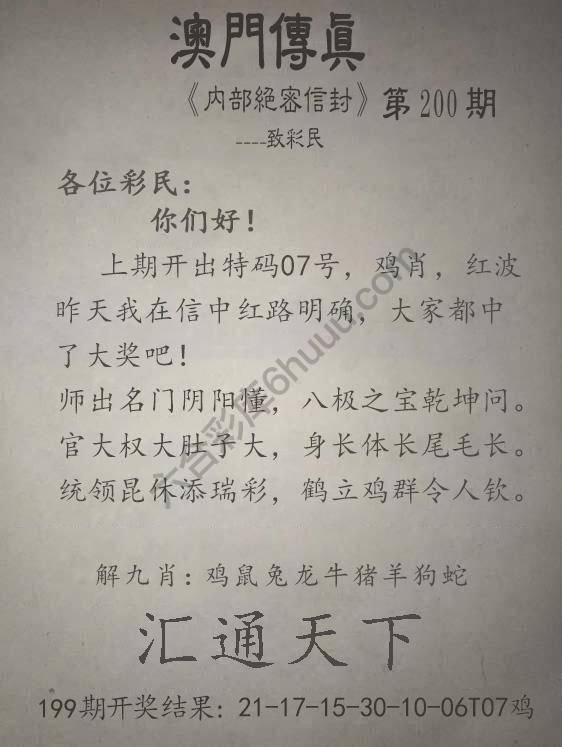 澳門傳真
《内部絕密信封》第200期
----致彩民
各位彩民：
你们好！
上期开出特码07号，鸡肖，红波
昨天我在信中红路明确，大家都中
了大奖吧！
师出名门阴阳懂，八极之宝乾坤问。
官大权大肚子大，身长体长尾毛长。
统领昆休添瑞彩，鹤立鸡群令人钦。
解九肖：鸡鼠兔龙牛猪羊狗蛇
汇通天下
199期开奖结果：21-17-15-30-10-06T07鸡
六合彩库6huuu.com